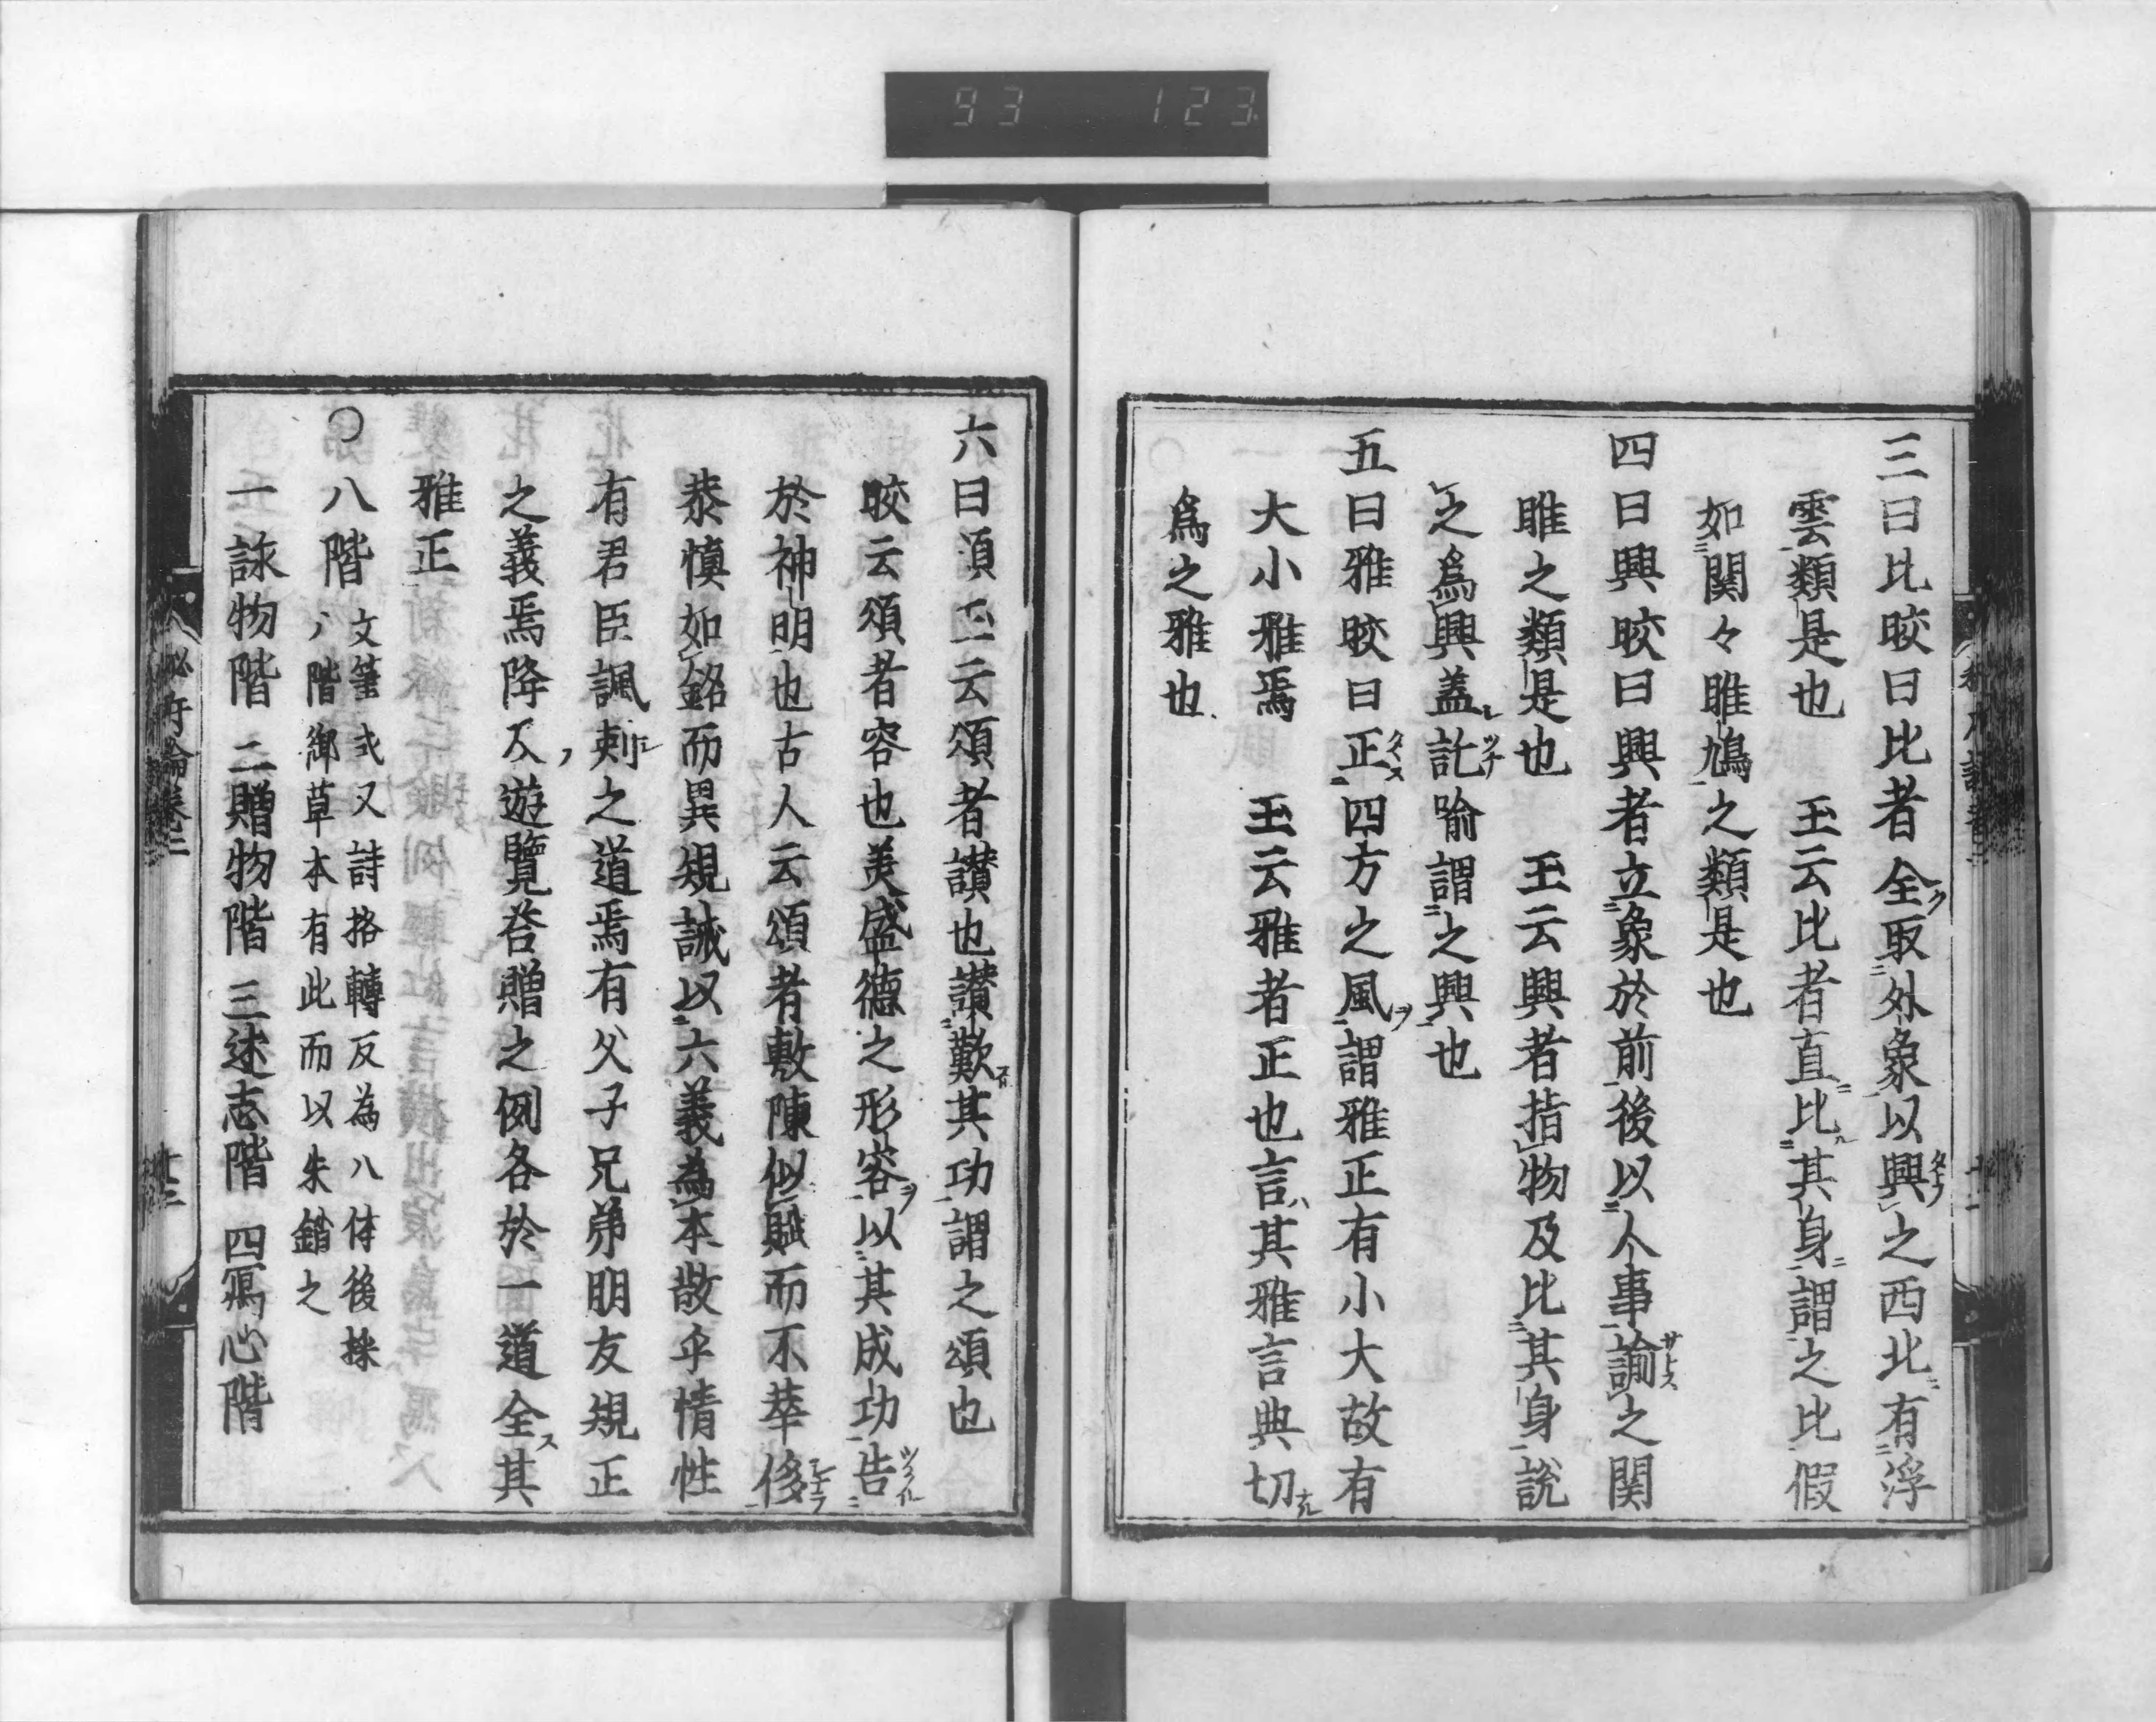 93 123
三曰比晈曰比者全取外象以興之西北有浮
雲類是也 王云比者直比其身謂之比假
如関々雎鳩之類是也
四曰興晈曰興者立象於前後以人事諭之関
雎之類是也 王云興者指物及比其身說
之為興蓋託喻謂之興也
五曰雅晈曰正四方之風謂雅正有小大故有
大小雅焉 王云雅者正也言其雅言典切
為之雅也
六曰頌王云頌者讃也讃歎其功謂之頌也
晈云頌者容也美盛德之形容以其成功告
於神明也古人云頌者敷陳似賦而不華侈
恭慎如銘而異規誡以六義為本散乎情性
有君臣諷刺之道焉有父子兄弟朋友規正
之義焉降及遊覽荅贈之例各於一道全其
雅正
○八階
文筆式又詩格轉反為八体後採
八階御草本有此而以朱錯之
一詠物階 二贈物階 三述志階 四寫心階